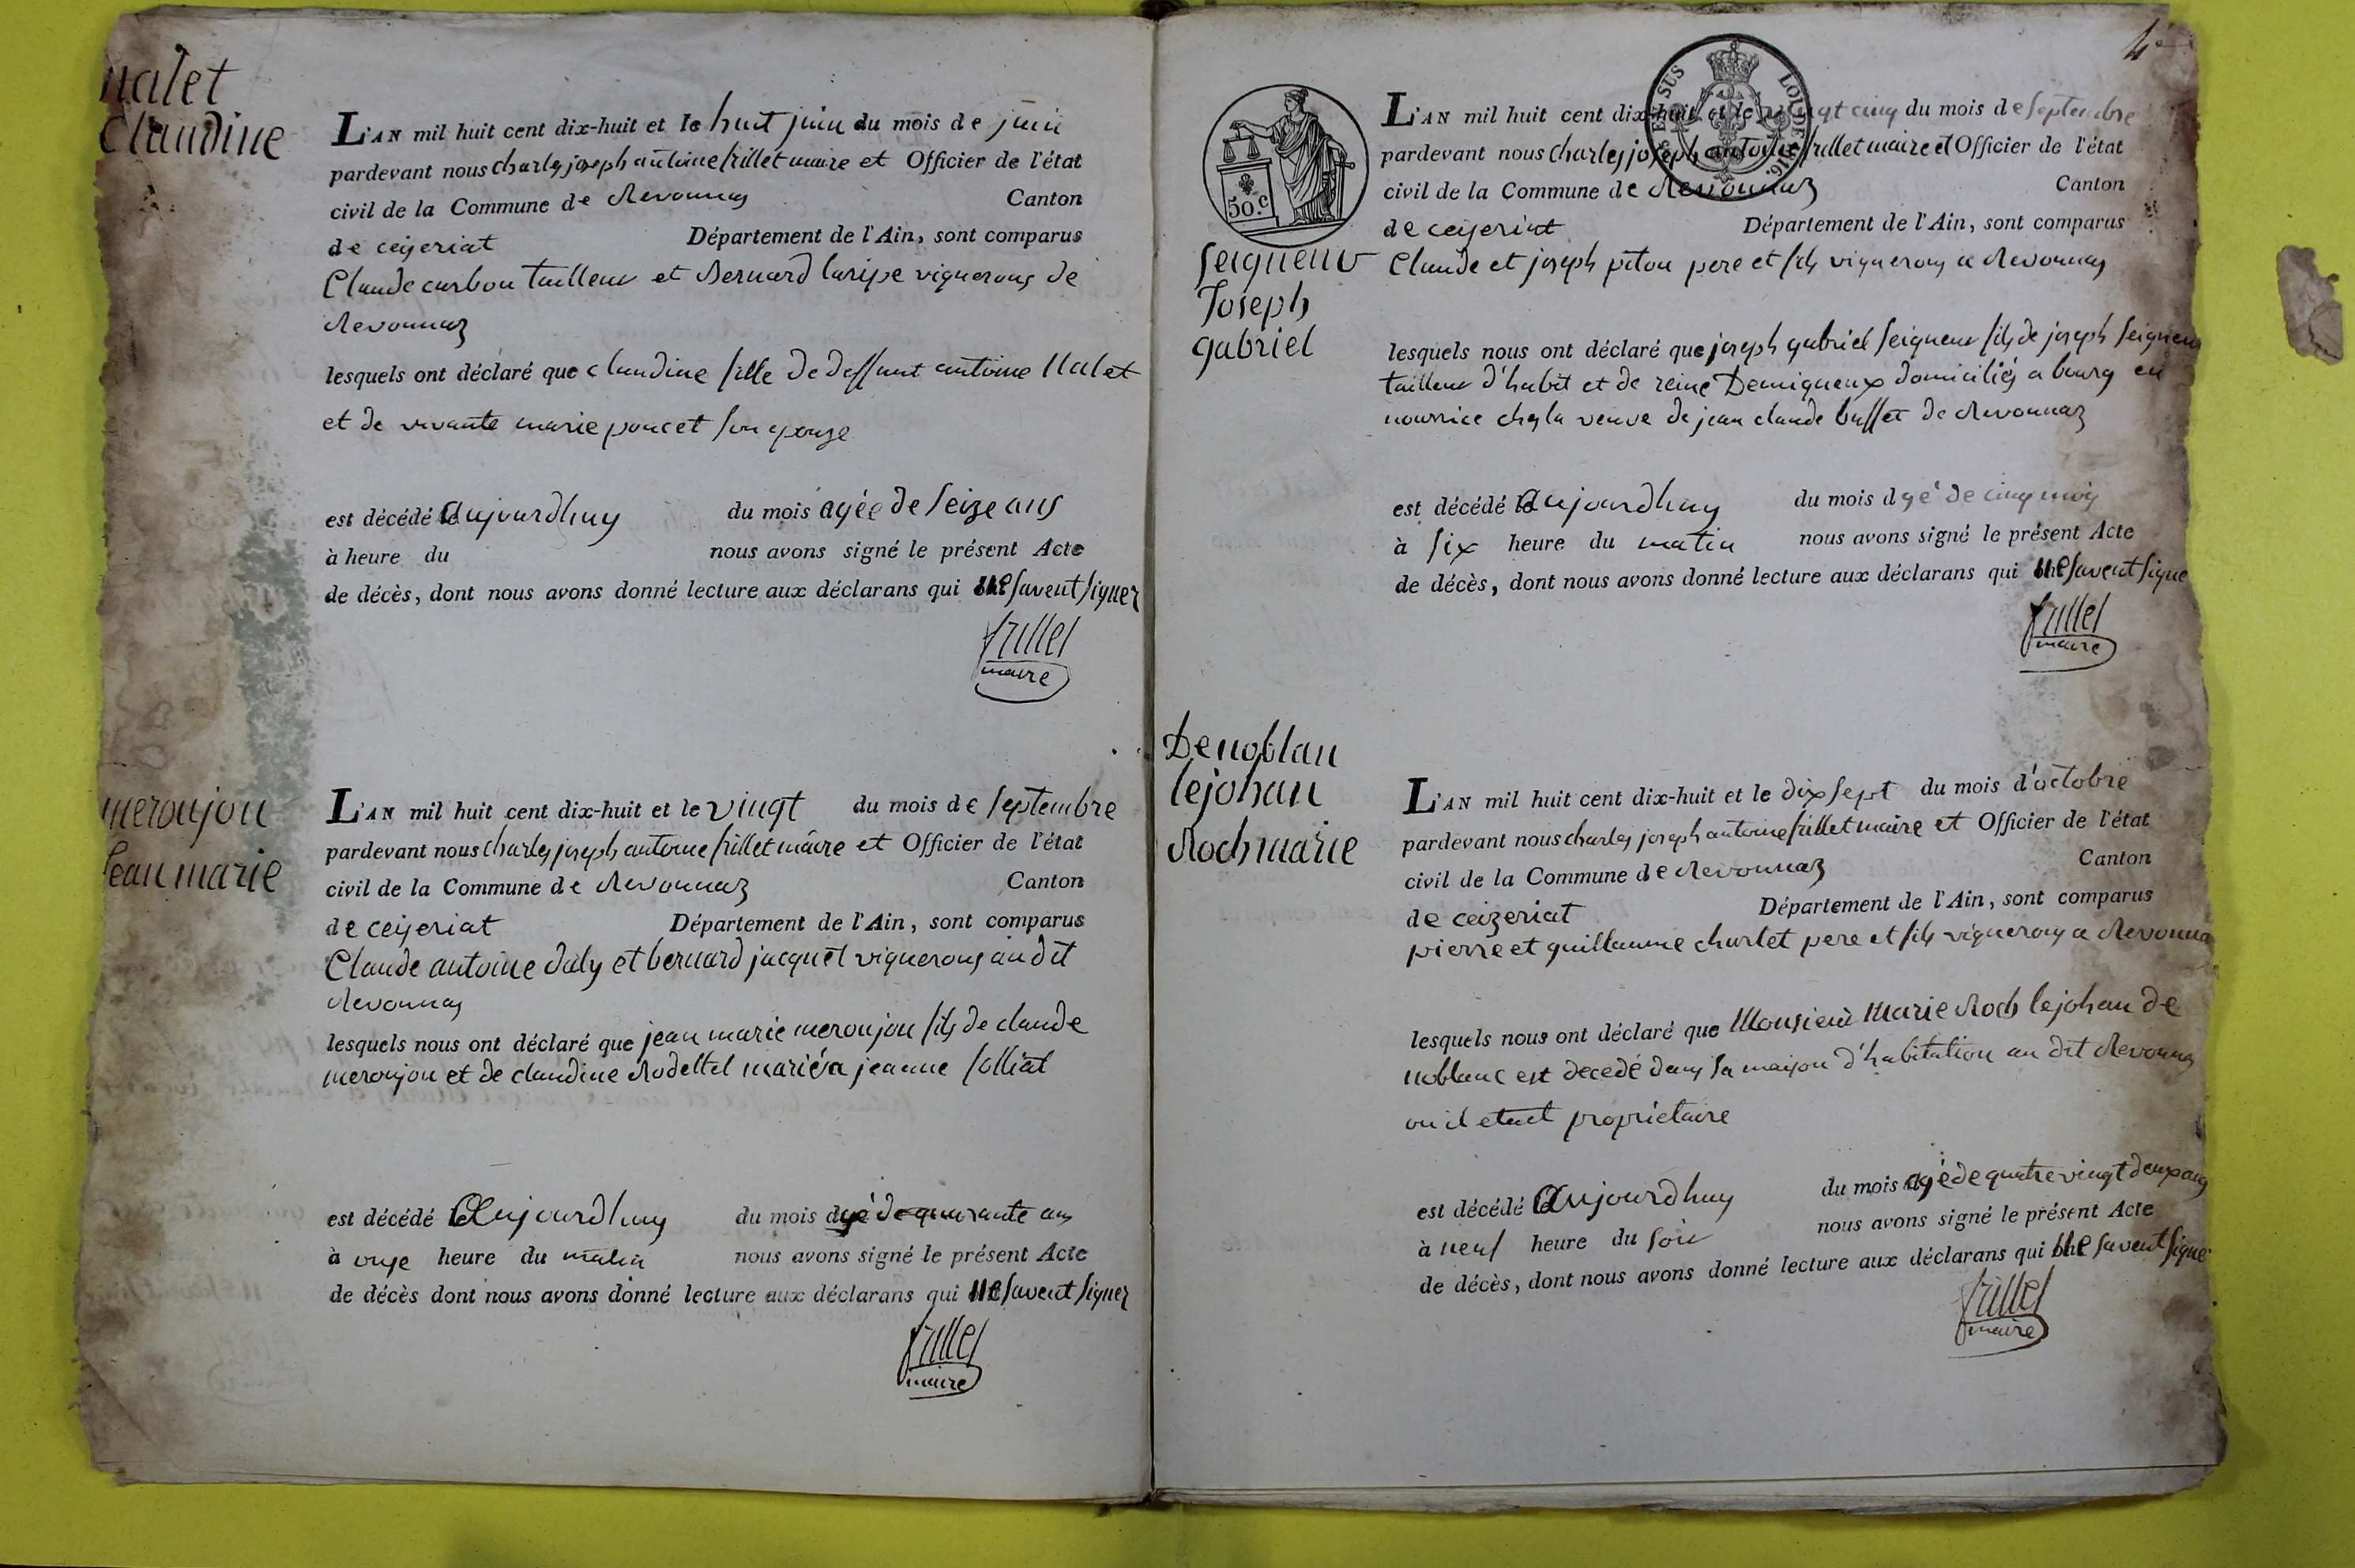 nalet
Claudine
L'AN mil huit cent dix-huit et le huit juin du mois de juin
pardevant nous charles joseph antoine frillet maire et Officier de l'état
civil de la Commune de Revonnas Canton
de ceyzeriat Département de l'Ain, sont comparus
Claude carbon tailleur et Bernard laripe vignerons de
Revonnaz
lesquels ont déclaré que claudine fille de deffunt antoine Nalet
et de vivante marie poncet son epouze
est décédé le aujourdhuy du mois agée de seize ans
à heure du nous avons signé le présent Acte
de décès, dont nous avons donné lecture aux déclarans qui ne savent signer
frillet
maire
meroujou
Jean marie
L'AN mil huit cent dix-huit et le vingt du mois de septembre
pardevant nous charles joseph antoine frillet maire et Officier de l'état
civil de la Commune de Revonnaz Canton
de ceyzeriat Département de l'Ain, sont comparus
Claude antoine daly et bernard jacquet vignerons au dit
Revonnas
lesquels nous ont déclaré que jean marie meroujou fils de claude
meroujou et de claudine Rodettel marié a jeanne folliat
est décédé le Aujourdhuy du mois agé de quarante ans
à onze heure du matin nous avons signé le présent Acte
de décès dont nous avons donné lecture aux déclarans qui ne savent signer
frillet
maire
4e
50.c
EN SUS LOI DE 1816.
L'AN mil huit cent dix-huit et le vingt cinq du mois de septembre
pardevant nous charles joseph antoine frillet maire et Officier de l'état
civil de la Commune de Revonnaz Canton
de ceyzeriat Département de l'Ain, sont comparus
Seigneur
Joseph
gabriel
Claude et joseph piton pere et fils vignerons a Revonnas
lesquels nous ont déclaré que joseph gabriel seigneur fils de joseph seigneur
tailleur d'habit et de reine Demigneux domiciliés a bourg en
nourrice chez la veuve de jean claude buffet de Revonnaz
est décédé le aujourdhuy du mois agé de cinq mois
à six heure du matin nous avons signé le présent Acte
de décès, dont nous avons donné lecture aux déclarans qui ne savent signe
frillet
maire
Denoblan
lejohan
Roch marie
L'AN mil huit cent dix-huit et le dix sept du mois d'octobre
pardevant nous charles joseph antoine frillet maire et Officier de l'état
civil de la Commune de Revonnaz Canton
de ceizeriat Département de l'Ain, sont comparus
pierre et guillaume charlet pere et fils vignerons a Revonna
lesquels nous ont déclaré que Monsieur Marie Roch lejohan de
noblanc est decedé dans sa maison d'habitation au dit Revonnas
ou il etait proprietaire
est décédé le Aujourdhuy du mois agé de quatre vingt deux ans
à neuf heure du soir nous avons signé le présent Acte
de décès, dont nous avons donné lecture aux déclarans qui ne savent signe
frillet
maire